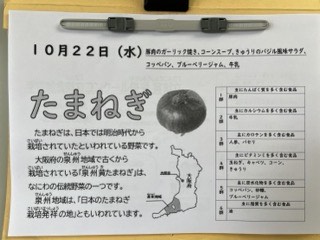 10月22日（水）
豚肉のガーリック焼き、コーンスープ、きゅうりのバジル風味サラダ、
コッペパン、ブルーベリージャム、牛乳
たまねぎ
たまねぎは、日本では明治時代から
栽培されていたといわれている野菜です。
大阪府の泉州地域で古くから
栽培されている「泉州黄たまねぎ」は、
なにわの伝統野菜の一つです。
泉州地域は、「日本のたまねぎ
栽培発祥の地」ともいわれています。
大阪府
泉州地域
1群
主にたんぱく質を多く含む食品
豚肉
2群
主にカルシウムを多く含む食品
牛乳
3群
主にカロテンを多く含む食品
人参、パセリ
4群
主にビタミンCを多く含む食品
玉ねぎ、キャベツ、コーン、
きゅうり
5群
主に炭水化物を多く含む食品
コッペパン、砂糖、
ブルーベリージャム
6群
主に脂質を多く含む食品
油